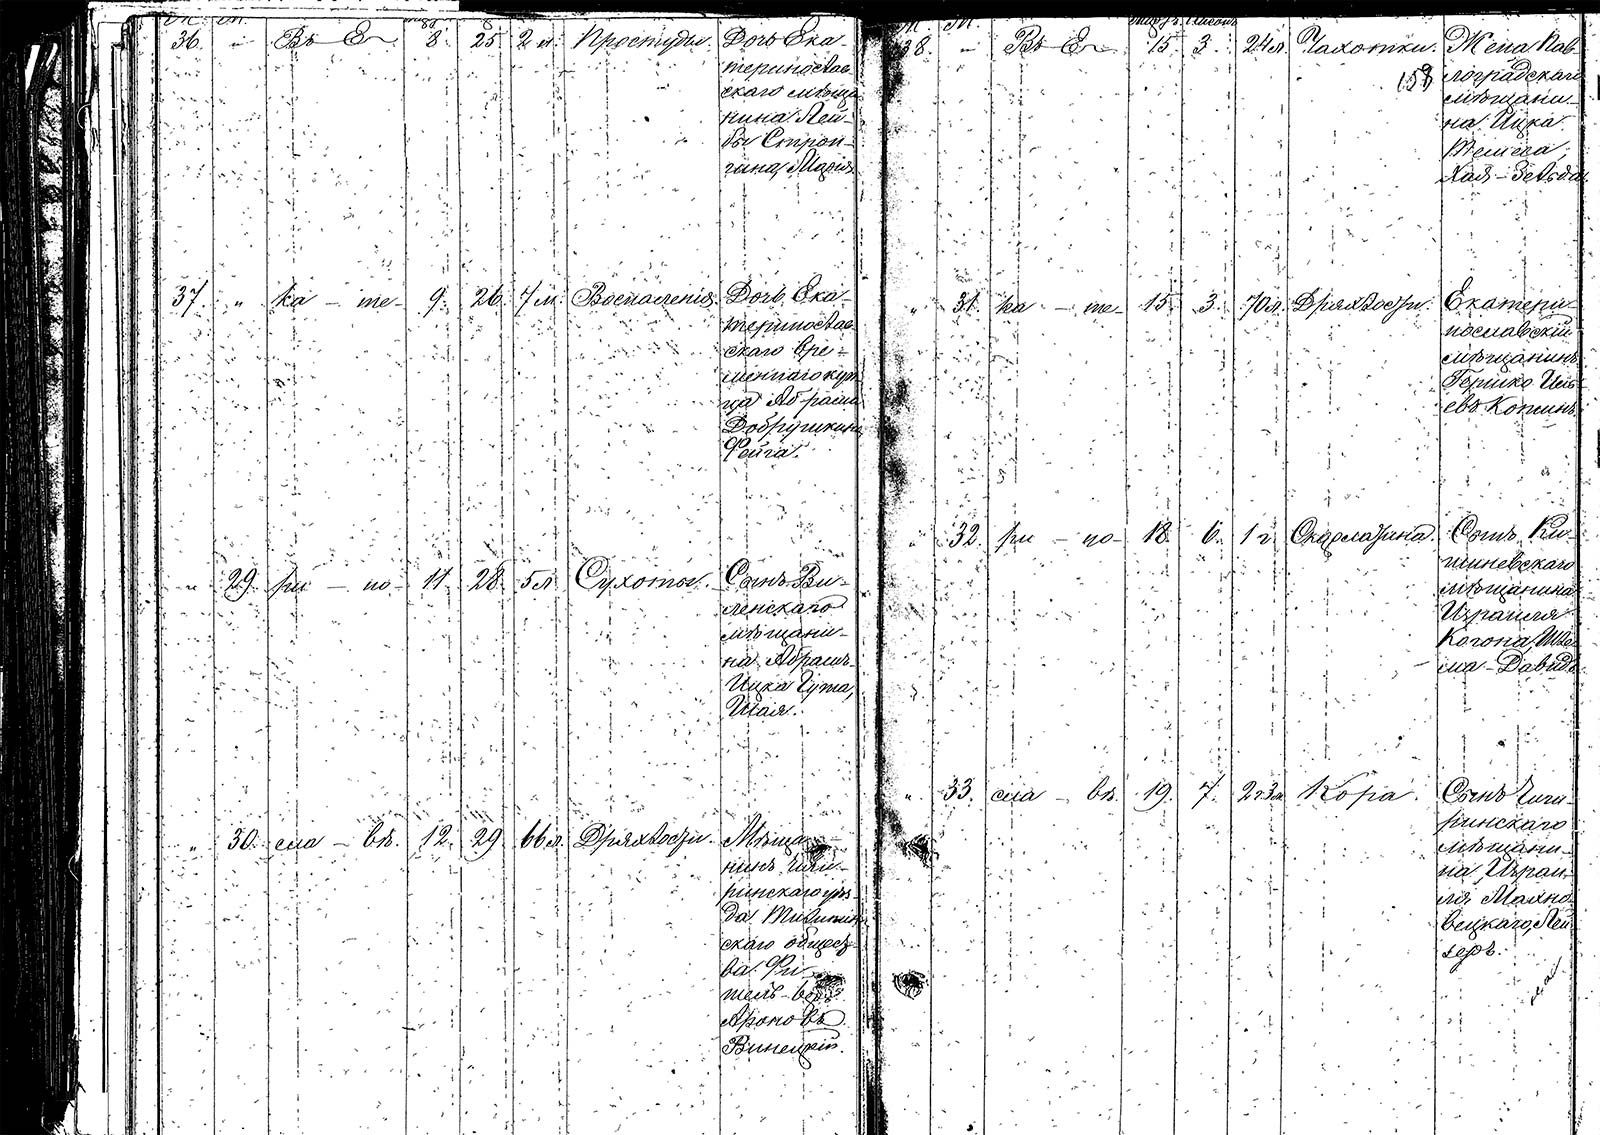 36. " Въ Е 8. 25 2 м. Простуды. Дочь Ека-
теринослав
скаго мѣща
нина Лей-
бы Строн-
гина, Марія
37. " ка - те- 9. 26. 7 м. Воспаленія. Дочь Ека-
теринослав
скаго вре-
меннаго куп
ца Абрама
Добрушкина
Фейга.
" 29. ри - но- 11. 28. 5 л. Сухоты. Сынъ Ви-
ленскаго
мѣщани-
на, Абрамъ-
Ицка Гута,
Шая.
" 30. сла - въ. 12. 29. 66 л. Дряхлости. Мѣща-
нинъ Чиги-
ринскаго уѣз-
да
скаго общес
ва Фи
тель-
Ароновъ
Винецкій.
38. " Въ Е 15. 3. 24 л. Чахотки. Жена Пав
158
лоградскаго
мѣщани-
на Ицка
Хая-Зельда
" 31. ка - те- 15. 3. 70 л. Дряхлости. Екатери-
нославскій
мѣщанинъ
Гершко Иль-
евъ Коганъ
" 32. ри - но- 18. 6. 1 г. Скарлатина. Сынъ Ки-
шиневскаго
мѣщанина
Израиля
Когона, Шле-
ма-Давидъ
" 33. сла - въ. 19. 7. 2 г. 3 м Кора. Сынъ Чиги-
ринскаго
мѣщани-
на, Израи-
ля Махно
вецкаго, Лей
зеръ.